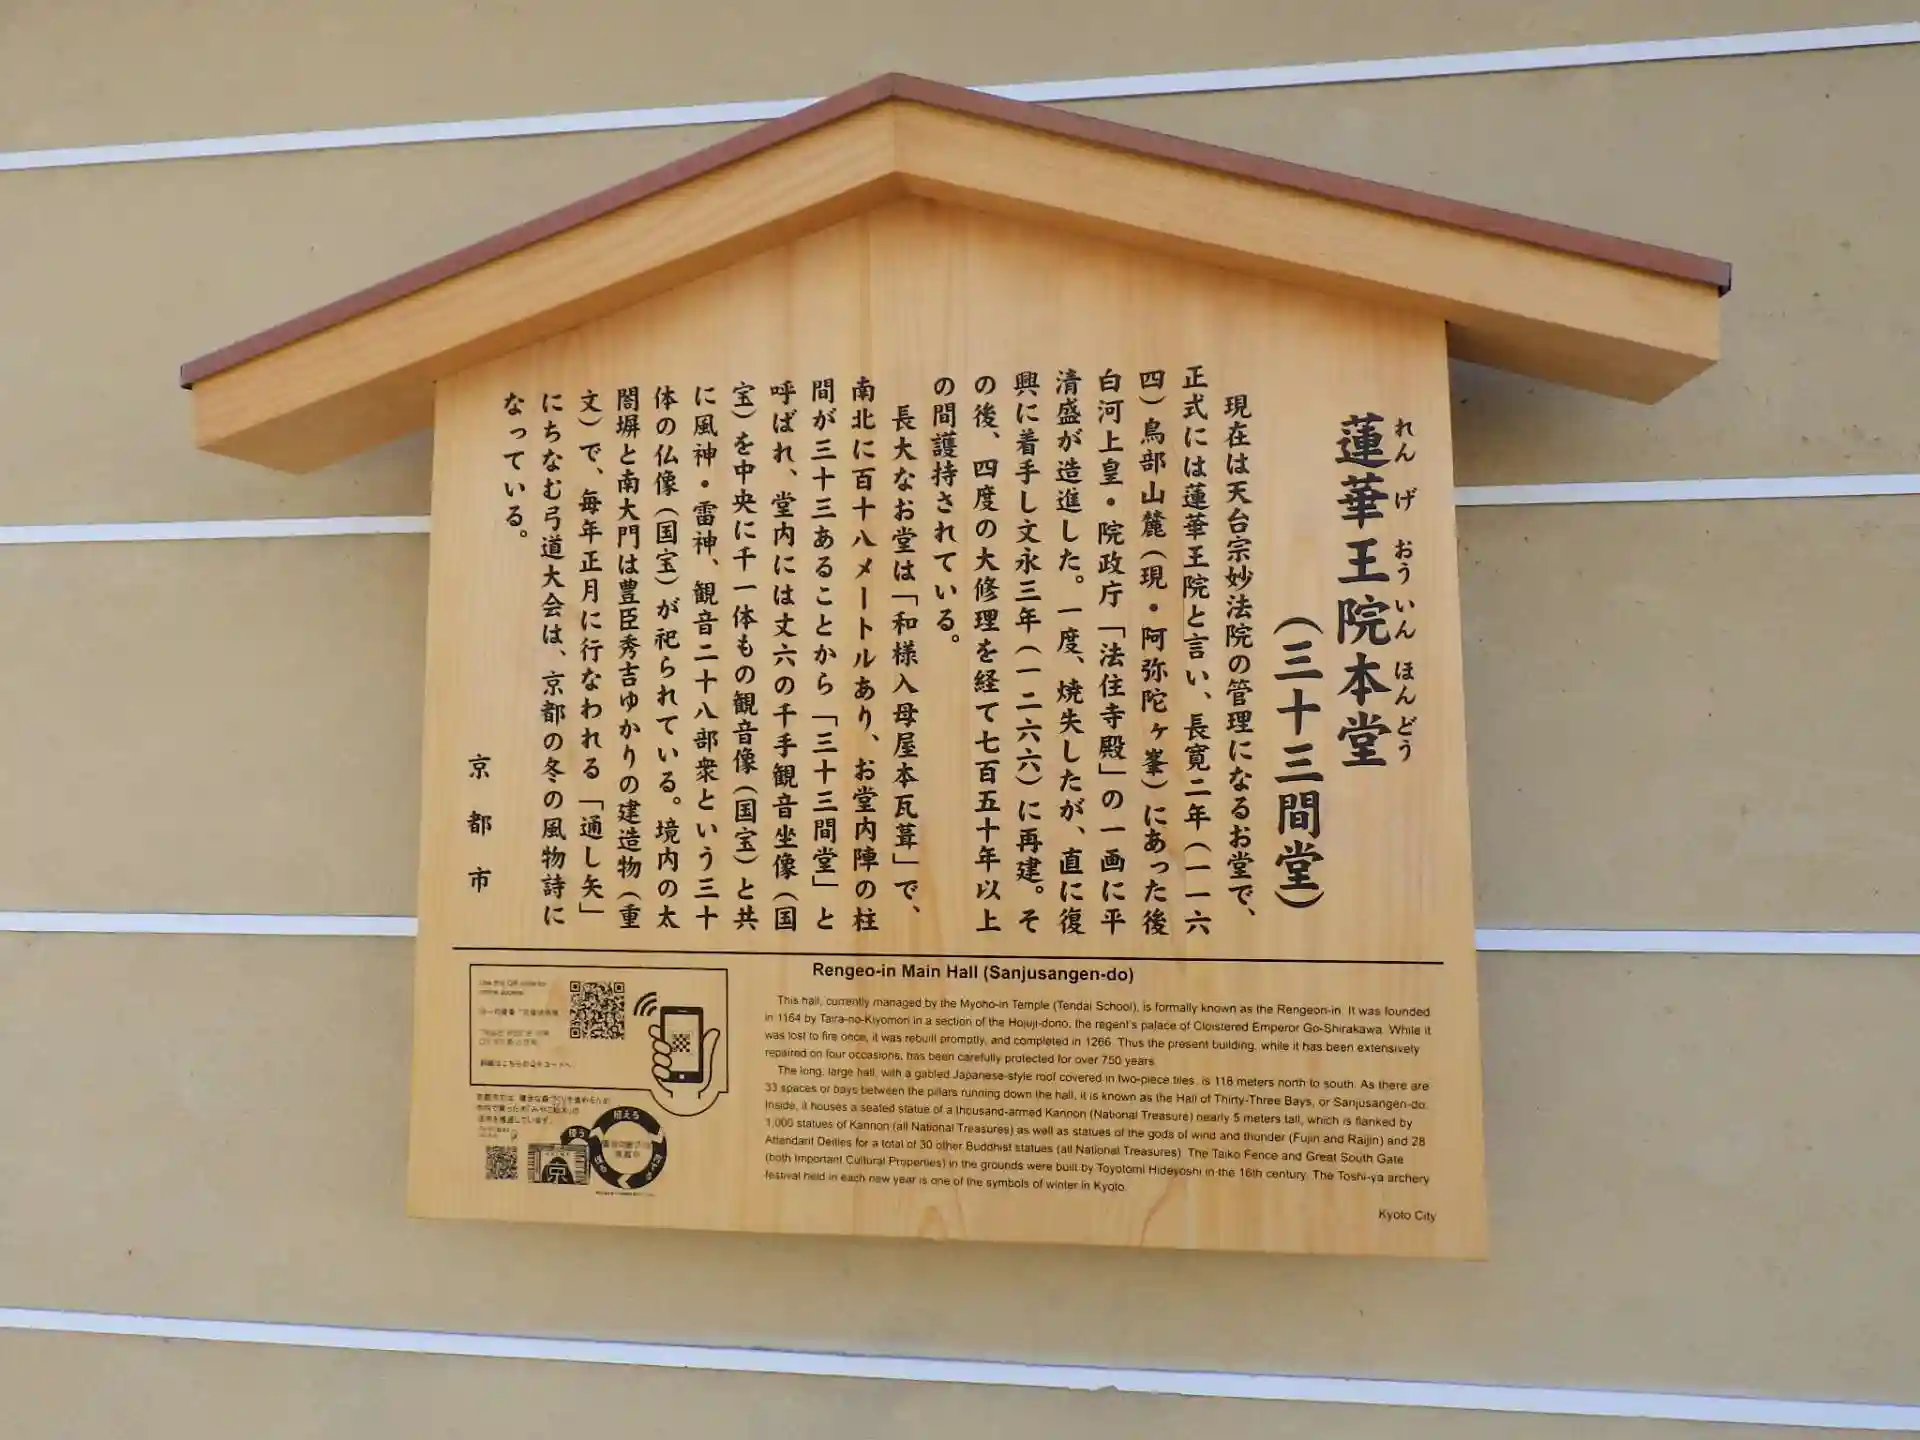 蓮華王院本堂
れんげおういんほんどう
（三十三間堂）
現在は天台宗妙法院の管理になるお堂で、
正式には蓮華王院と言い、長寛二年（一一六
四）鳥部山麓（現・阿弥陀ヶ峯）にあった後
白河上皇・院政庁「法住寺殿」の一画に平
清盛が造進した。一度、焼失したが、直に復
興に着手し文永三年（一二六六）に再建。そ
の後、四度の大修理を経て七百五十年以上
の間護持されている。
長大なお堂は「和様入母屋本瓦葺」で、
南北に百十八メートルあり、お堂内陣の柱
間が三十三あることから「三十三間堂」と
呼ばれ、堂内には丈六の千手観音坐像（国
宝）を中央に千一体もの観音像（国宝）と共
に風神・雷神、観音二十八部衆という三十
体の仏像（国宝）が祀られている。境内の太
閤塀と南大門は豊臣秀吉ゆかりの建造物（重
文）で、毎年正月に行なわれる「通し矢」
にちなむ弓道大会は、京都の冬の風物詩に
なっている。
京都市
Rengeo-in Main Hall (Sanjusangen-do)
This hall, currently managed by the Myoho-in Temple (Tendai School), is formally known as the Rengeon-in. It was founded
in 1164 by Taira-no-Kiyomori in a section of the Hojuji-dono, the regent's palace of Cloistered Emperor Go-Shirakawa. While it
was lost to fire once, it was rebuilt promptly, and completed in 1266. Thus the present building, while it has been extensively
repaired on four occasions, has been carefully protected for over 750 years.
The long, large hall, with a gabled Japanese-style roof covered in two-piece tiles, is 118 meters north to south. As there are
33 spaces or bays between the pillars running down the hall, it is known as the Hall of Thirty-Three Bays, or Sanjusangen-do.
Inside, it houses a seated statue of a thousand-armed Kannon (National Treasure) nearly 5 meters tall, which is flanked by
1,000 statues of Kannon (all National Treasures) as well as statues of the gods of wind and thunder (Fujin and Raijin) and 28
Attendant Deities for a total of 30 other Buddhist statues (all National Treasures). The Taiko Fence and Great South Gate
(both Important Cultural Properties) in the grounds were built by Toyotomi Hideyoshi in the 16th century. The Toshi-ya archery
festival held in each new year is one of the symbols of winter in Kyoto.
Kyoto City
Use this QR code for
online access.
詳細はこちらのQRコードへ
植える